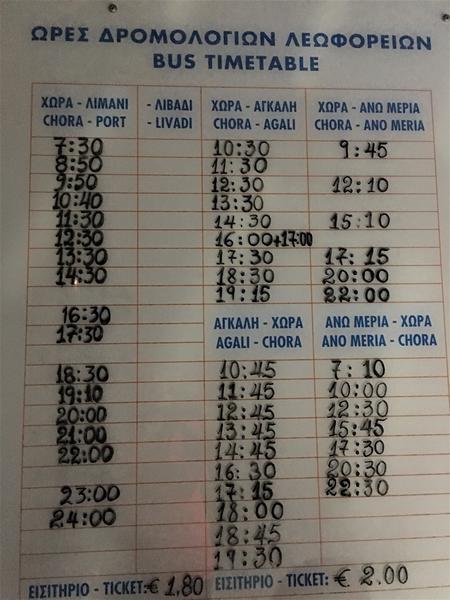 ΩΡΕΣ ΔΡΟΜΟΛΟΓΙΩΝ ΛΕΩΦΟΡΕΙΩΝ
BUS TIMETABLE
ΧΩΡΑ - ΛΙΜΑΝΙ
CHORA - PORT
7:30
8:50
9:50
10:40
11:30
12:30
13:30
14:30
16:30
17:30
18:30
19:10
20:00
21:00
22:00
23:00
24:00
- ΛΙΒΑΔΙ
- LIVADI
ΧΩΡΑ - ΑΓΚΑΛΗ
CHORA - AGALI
10:30
11:30
12:30
13:30
14:30
16:00+17:00
17:30
18:30
19:15
ΑΓΚΑΛΗ - ΧΩΡΑ
AGALI - CHORA
10:45
11:45
12:45
13:45
14:45
16:30
17:15
18:00
18:45
19:30
ΧΩΡΑ - ΑΝΩ ΜΕΡΙΑ
CHORA - ANO MERIA
9:45
12:10
15:10
17:15
20:00
22:00
ΑΝΩ ΜΕΡΙΑ - ΧΩΡΑ
ANO MERIA - CHORA
7:10
10:00
12:30
15:45
17:30
20:30
22:30
ΕΙΣΙΤΗΡΙΟ - TICKET:€ 1,80
ΕΙΣΙΤΗΡΙΟ - TICKET: € 2.00